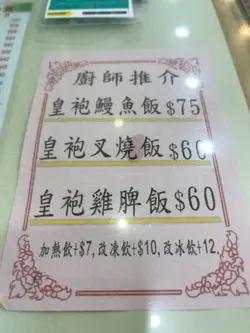 廚師推介
皇袍鰻魚飯$75
皇袍叉燒飯$60
皇袍雞脾飯$60
加熱飲+$7,改凍飲+$10,改冰飲+12.